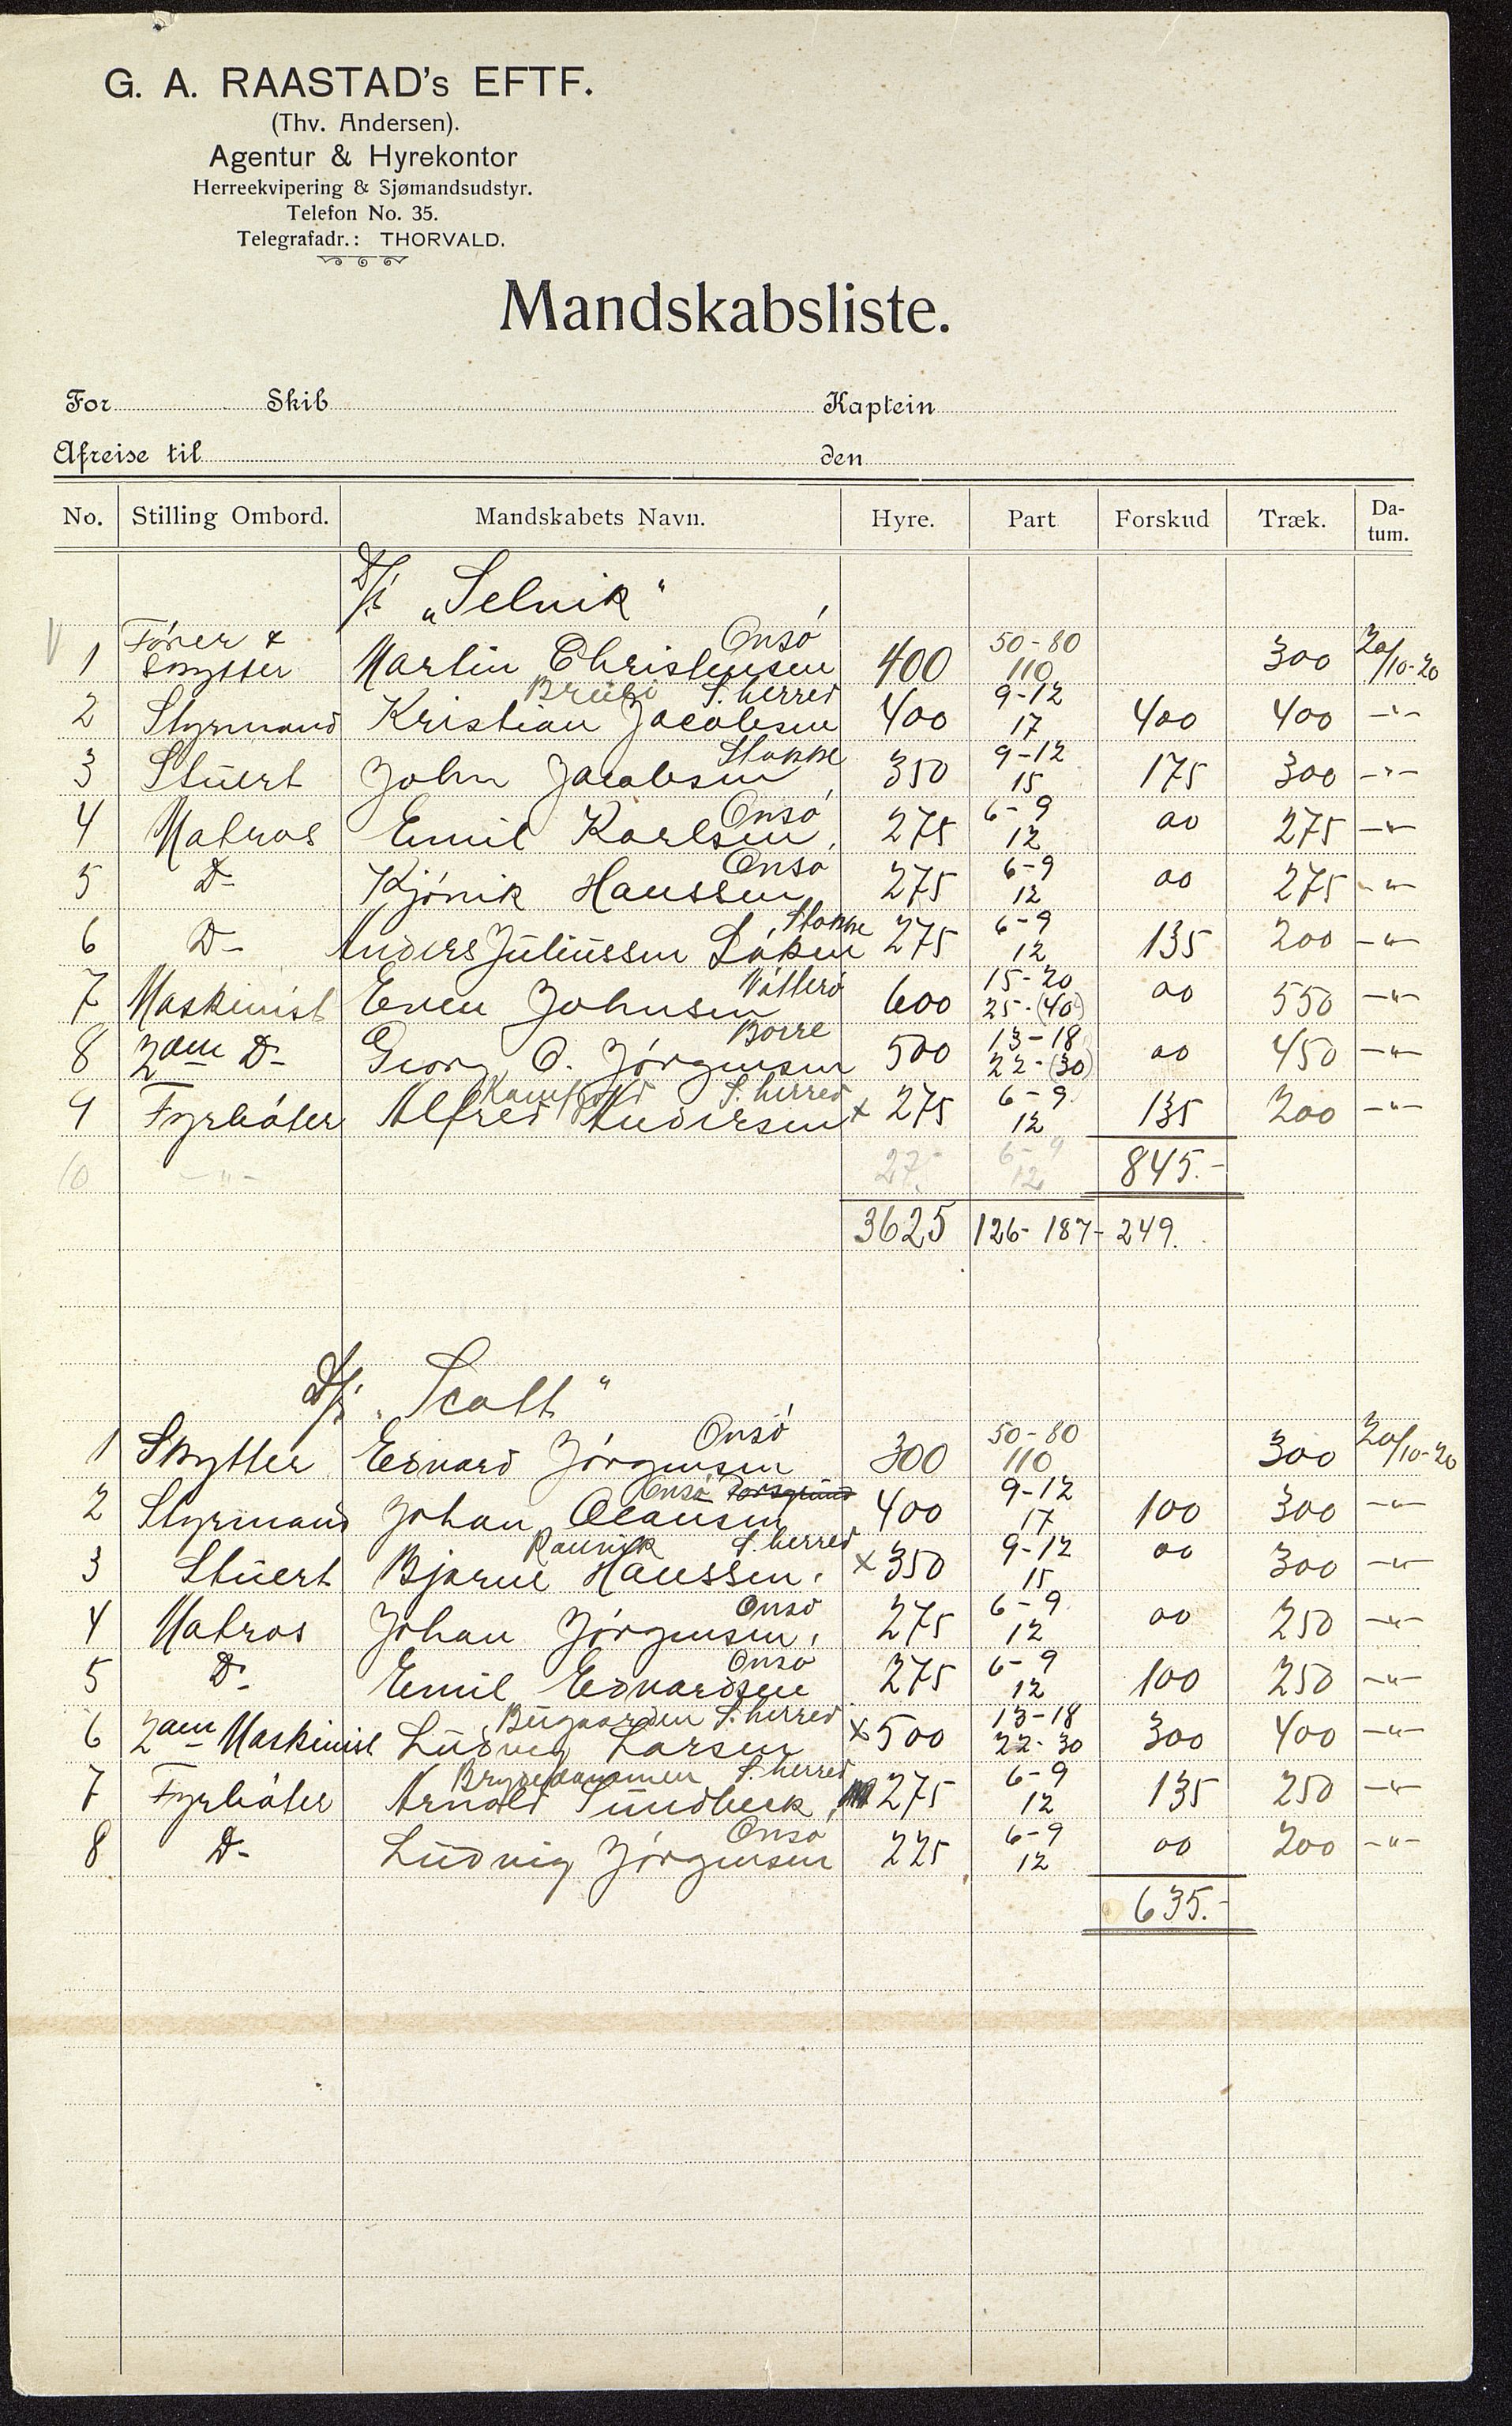 G. A. RAASTAD's EFTF.
(Thv. Andersen).
Agentur & Hyrekontor
Herreekvipering & Sjømandsudstyr.
Telefon No. 35.
Telegrafadr.: THORVALD.
Mandskabsliste.
For Skib Kaptein
Afreise til den
No. Stilling Ombord. Mandskabets Navn. Hyre. Part Forskud Træk. Datum.
D/s „Selvik“
1 Fører & Skytter Martin Christensen Onsö 400 50-80 110 300 20/10-20
2 Styrmand Kristian Jacobsen S. herred 400 9-12 17 400 400 -"-
3 Stüert John Jacobsen Stokke 350 9-12 15 175 300 -"-
4 Matros Emil Karlsen. Onsö 275 6-9 12 00 275 -"-
5 Do Kjönik Hanssen Onsö 275 6-9 12 00 275 -"-
6 Do Anders Juliussen Löken Stokke 275 6-9 12 135 200 -"-
7 Maskinist Even Johnsen Nötterö 600 15-20 25-(40) 00 550 -"-
8 2den Do Georg O. Jörgensen Borre 500 13-18 22-(30) 00 450 -"-
9 Fyrböter Alfred Andersen S. herred x 275 6-9 12 135 200 -"-
10 -"- 27 6-9 12 845.-
3625 126- 187- 249.
D/s „Scott“
1 Skytter Edvard Jörgensen Onsö 300 50-80 110 300 20/10-20
2 Styrmand Johan Olausen Onsö Porsgrund 400 9-12 17 100 300 -"-
3 Stüert Bjarne Hanssen. Ranvik S. herred x 350 9-12 15 00 300 -"-
4 Matros Johan Jörgensen. Onsö 275 6-9 12 00 250 -"-
5 Do Emil Edvardsen Onsö 275 6-9 12 100 250 -"-
6 2den Maskinist Ludvig Larsen Bugaarden S. herred x 500 13-18 22-30 300 400 -"-
7 Fyrböter Arnold Sundbeck S. herred 275 6-9 12 135 250 -"-
8 Do Ludvig Jörgensen Onsö 225 6-9 12 00 200 -"-
635.-